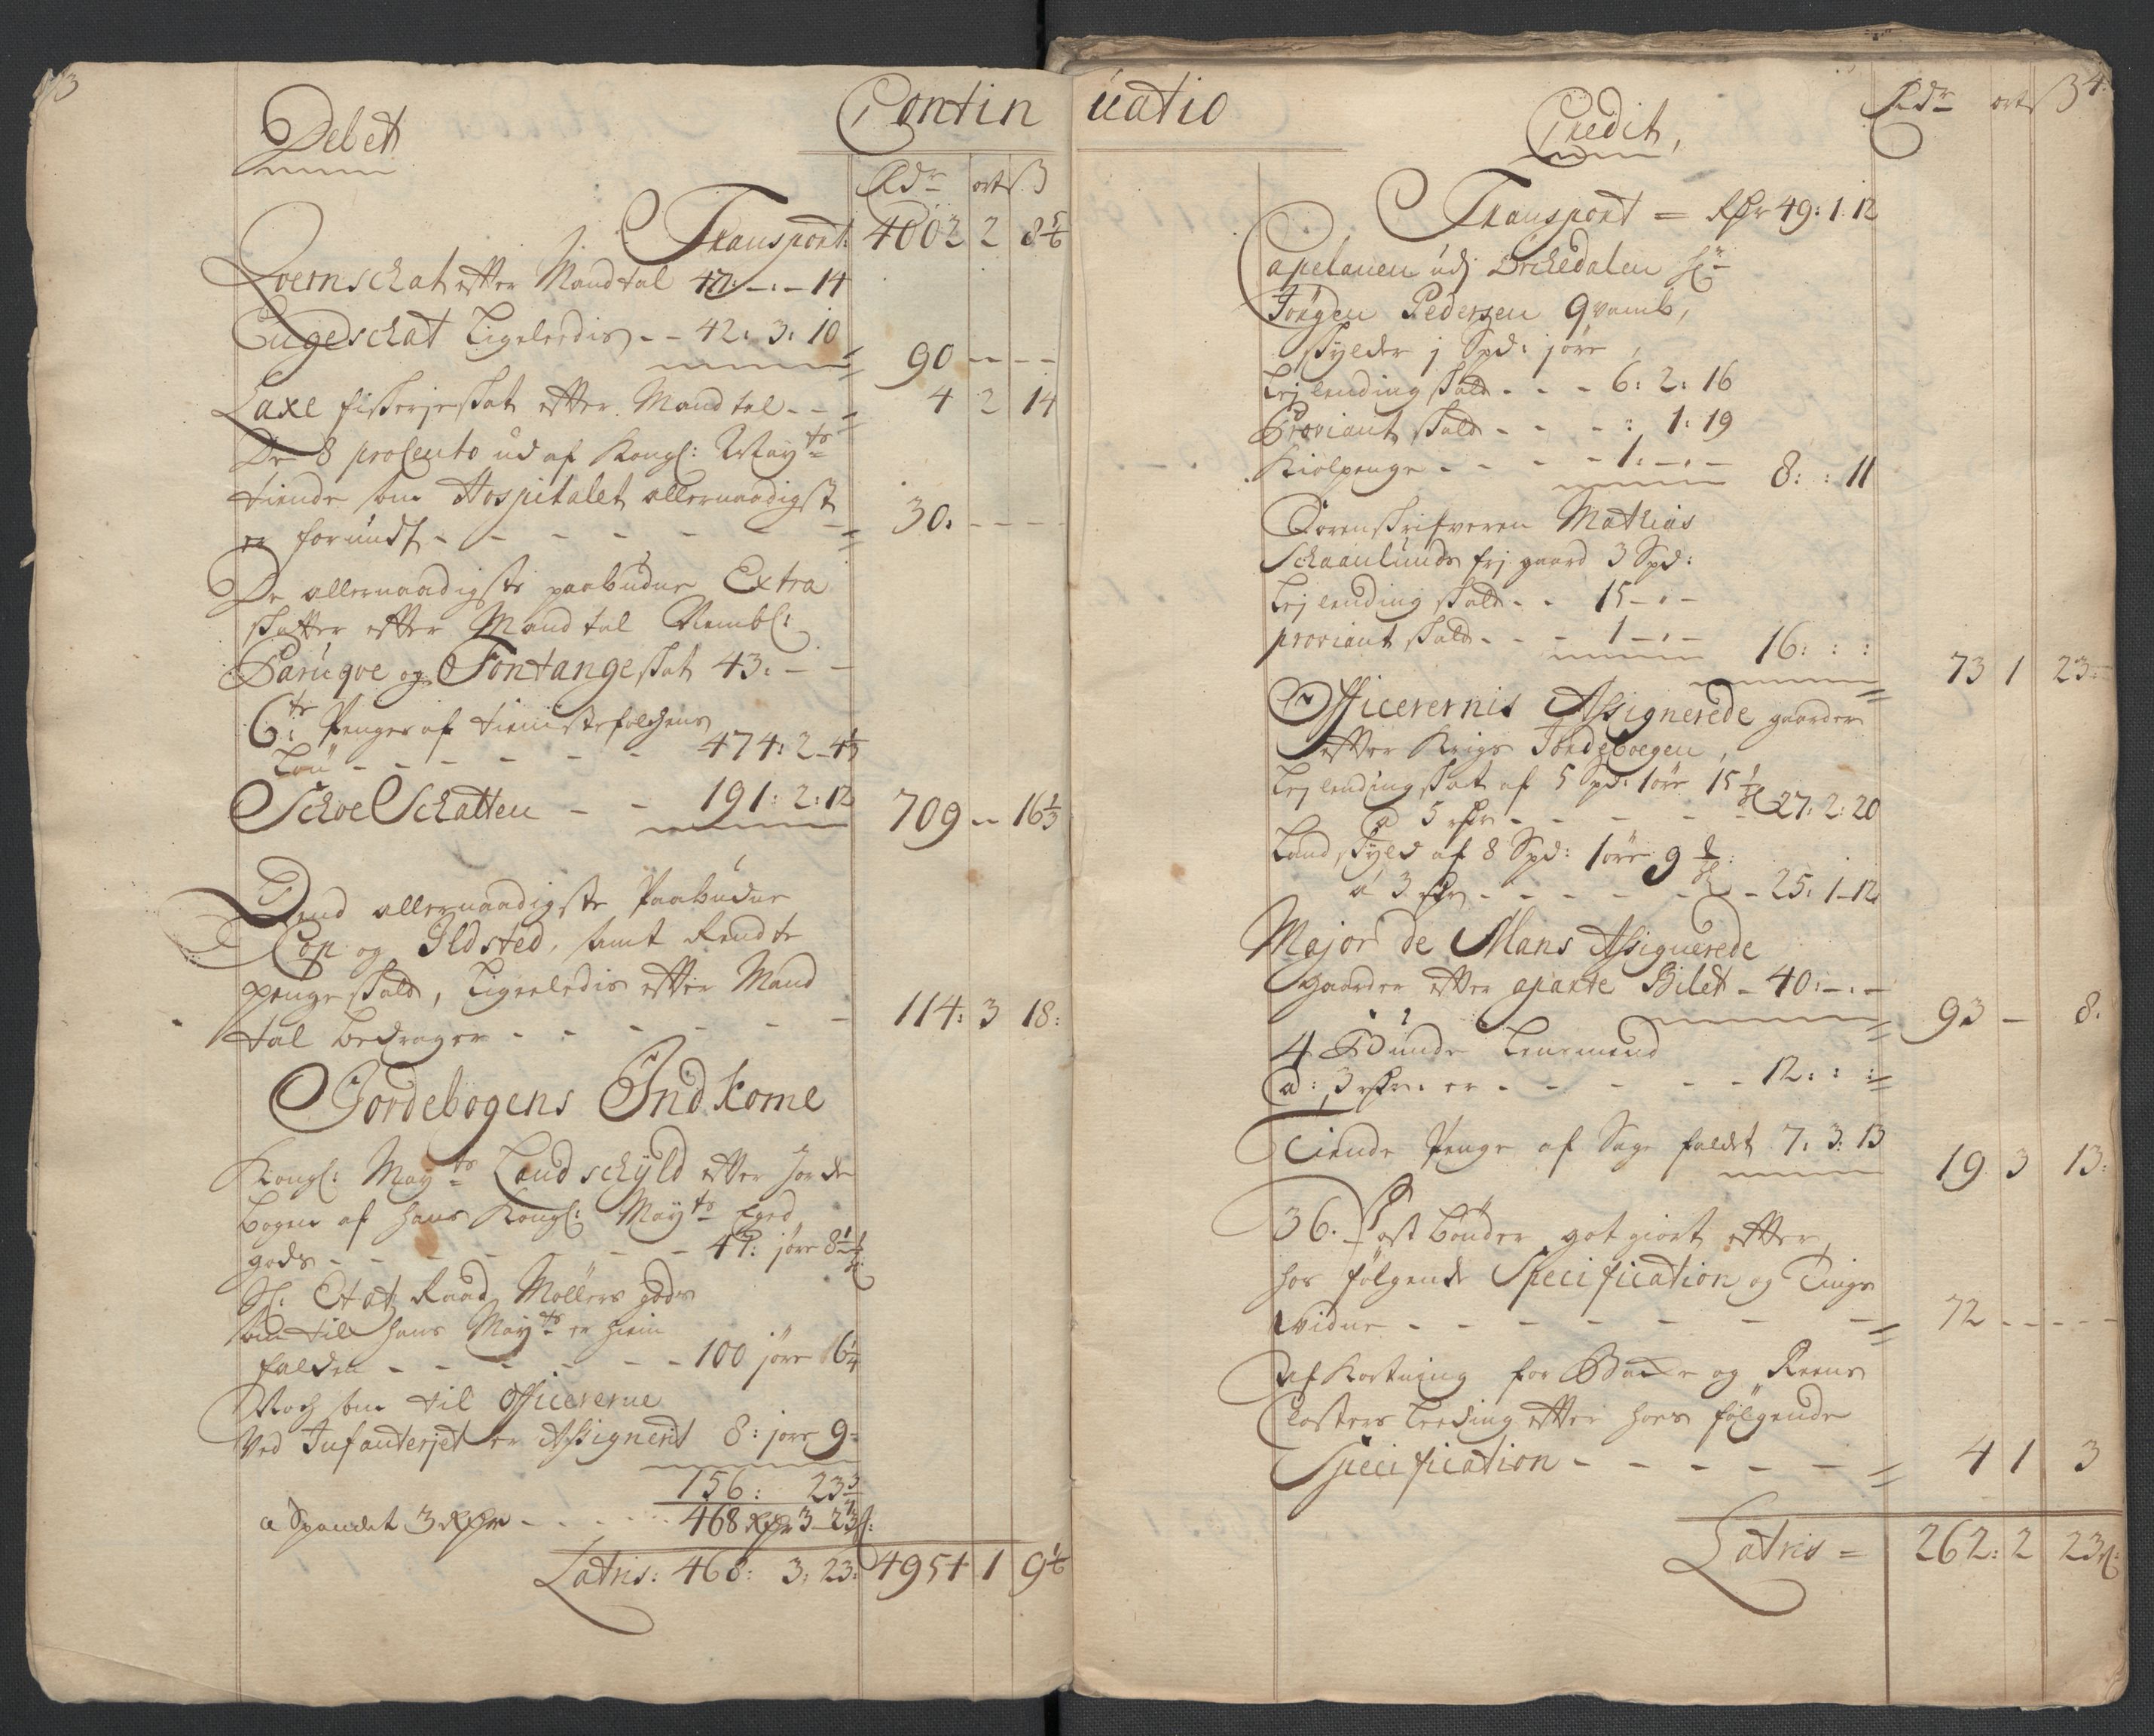 3
Debet
Contin
Rdr ort ß
Transport: 4002 2 8 5/6
Qvernschat efter Mandtal 47:-:-14
Bügeschat Ligeledis - - 42: 3: 10
90 -- --
Laxe fiskerje skat efter Mandtal - - 4 2 14
De 8 procento ud af Kongl: Mayts
tiende som Hospitalet allernaadigst
er forundt - - - - - - 30: - - -
De allernaadigste paabudne Extra
skatter efter Mandtal Nembl:
Paruqve og Fontange skat 43: - -
6te Penger af tienistefolchens
Lön - - - - - - 474: 2-4 1/3
Schoe Schatten - - 191: 2: 12 709 -- 16 1/3
Dend allernaadigste Paabudne
Cop og Ildsted, samt Rendte
penge skatt, Ligeeledis efter Mand
tal bedrager - - - - - - 114: 3 18:
Jordebogens Indkome
Kongl: Mayts Landschyld efter Jorde
bogen af hans Kongl: Mayts Eget
gods - - - - - - - 47: jøre 8 1/2
Sl: Etat Raad Möllers gods
som til hans Mayts er hiem
falden - - - - - - 100 jøre 16 1/4
Noch som til Officererne
Ved Infanterjet er Assignerit 8: jøre 9-
156: 23 3/4
a Spandet 3 Rdr - - - - - 468 Rdr 3-23 ß:
Latris: 468: 3: 23: 4951 1 9 1/6
uatio
Credit,
Rdr ort ß 4.
Transport = Rdr 49: 1: 12
Capelanen udj Orchedalen Hr
Jörgen Pedersen Qvamb,
skylder j Spd: jøre,
Lejlending skatt - - - 6: 2: 16
Proviant skatt - - - : 1: 19
Kiølpenge - - - - 1:-:- 8: : 11
Sorenskrifveren Mathias
Schaanlunds frj gaard 3 Spd:
Lejlending skatt - - 15-:-
proviant skatt - - - 1-:- 16: : :
73 1 23-
Officerernis Assignerede gaarder
efter Krigs Jordebogen,
Lejlending skat af 5 Spd: 1øre 15 1/2
a 5 rdr - - - - - - 27: 2: 20
Landskyld af 8 Spd: 1øre 9
a 3 rdr - - - - - - 25: 1-12
Major de Mans Assignerede
gaarder efter aparte Bilet - 40:-:-
93 - 8.
4 Bunde Lensmend
a: 3 rdr: er - - - - - 12: : :
Tiende Penge af Sage faldet 7: 3: 13
19 3 13:
36. Post bönder got giort efter
hos følgende Specification og Tings
widne - - - - - - - 72 - - - -
Afkortning for Bachr og Reens
Closters Leeding efter hoes følgende
Specification - - - - - 4 1 3
Latris = 262: 2 23 ß: